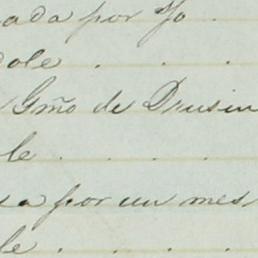 ada por Yo .
dole . . .
Gmo de Drusin
le . . .
sa por un mes
le . . .